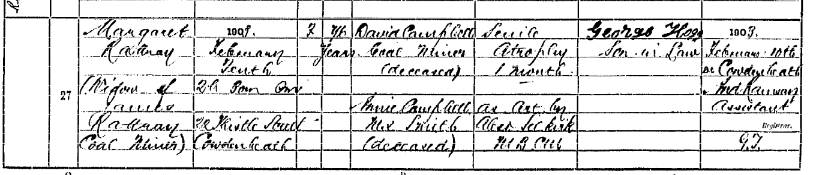 27
Margaret
Rattray
(Widow of
James
Rattray
Coal Miner)
February
Tenth
Thistle Street
Cowdenbeath
Years
David Campbell
Coal Miner
(deceased)
Annie Campbell
M.S. Smith
(deceased)
Senile
Atrophy
1 month
as Cert by
Alex Selkirk
George Hogg
Son in Law
1903
February 10th
at Cowdenbeath
Assistant
Registrar.